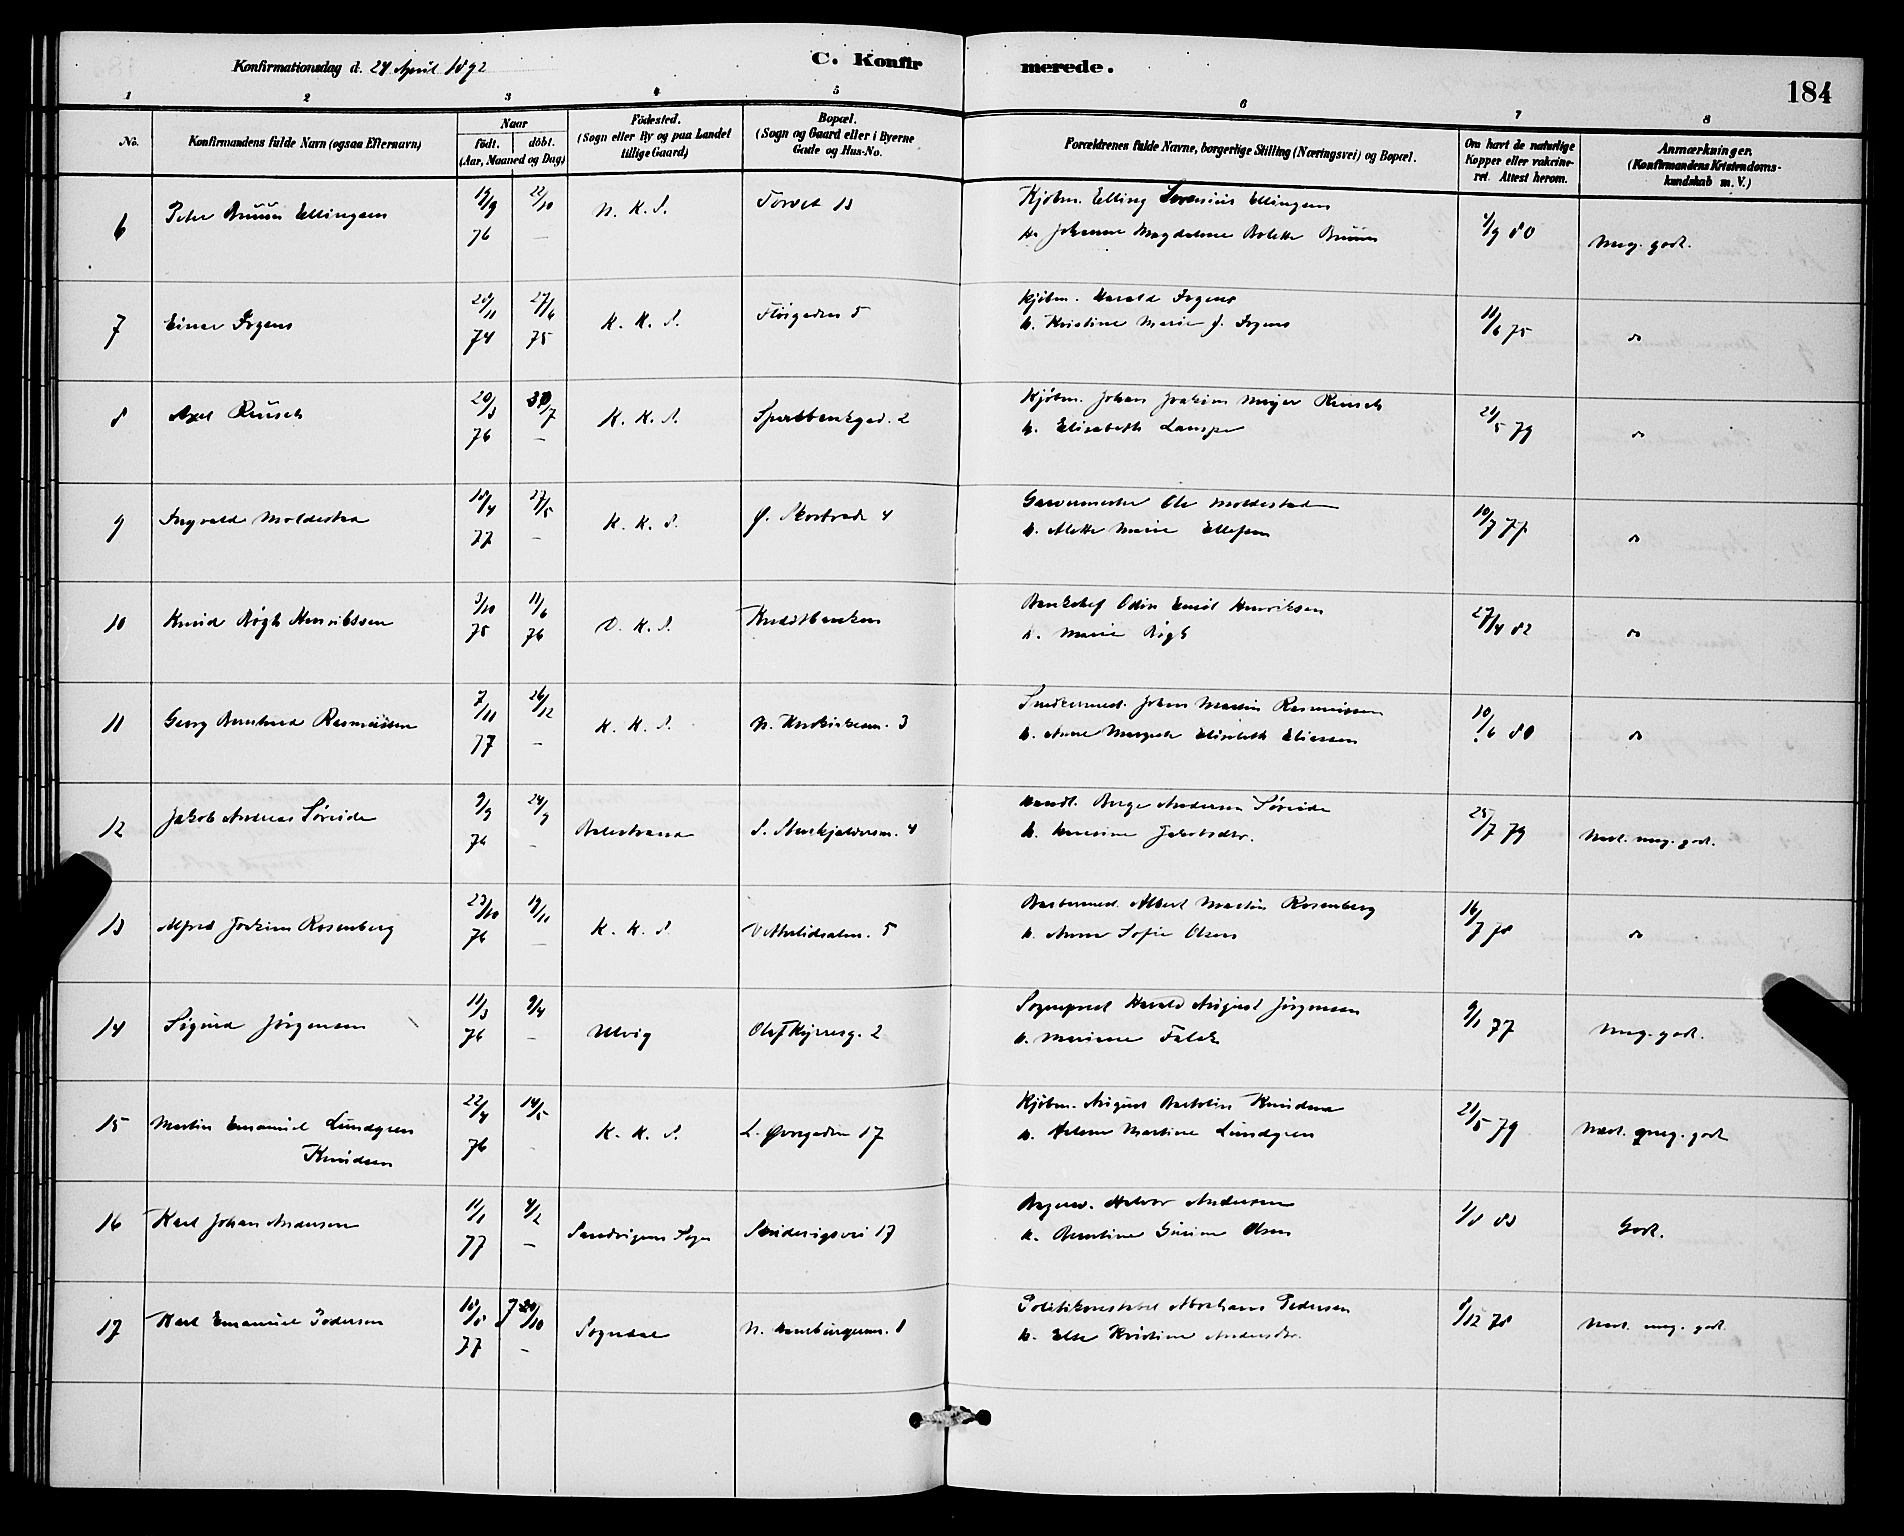 Konfirmationsdag d. 24 April 1892
C. Konfir
merede.
184
1 2 3 4 5 6 7 8
No.
Konfirmandens fulde Navn (ogsaa Efternavn)
Naar
födt. döbt.
(Aar, Maaned og Dag)
Födested.
(Sogn eller By og paa Landet
tillige Gaard)
Bopæl.
(Sogn og Gaard eller i Byerne
Gade og Hus-No.
Forældrenes fulde Navne, borgerlige Stilling (Næringsvei) og Bopæl.
Om havt de naturlige
Kopper eller vakcine-
ret. Attest herom.
Anmærkninger.
(Konfirmandens Kristendoms-
kundskab m. V.)
6 Peter Bruun Ellingsen 19/9 76 22/10 – N. K. S. Torvet 13
Kjøbm. Elling Severinius Ellingsen
H. Johanne Magdalene Bolette Bruun
4/9 80 Meg. godt.
7 Einar Irgens 28/11 74 27/6 75 K. K. S. Fløigaden 5
Kjøbm. Harald Irgens
H. Kristine Marie f. Irgens
11/6 75 do
8 Axel Reusch 20/3 76 30/7 – K. K. S. Sparebankgad. 2
Kjøbm. Johan Joakim Meyer Reusch
H. Elisabeth Lampe
21/5 79 do
9 Ingvald Moldestad 18/4 77 27/5 – K. K. S. Ø. Skostræde 4
Garvermester Ole Moldestad
H. Alette Marie Ellefsen
10/7 77 do
10 Knud Bøgh Henrikssen 3/10 75 11/6 76 D. K. S. Kreditbanken
Bankchef Odin Emil Henriksen
H. Marie Bøgh
27/4 82 do
11 Georg Bernhard Rasmussen 7/11 77 26/12 – K. K. S. N. Korskirkealm. 3
Snedkermed. Johan Martin Rasmussen
H. Anne Margrete Elisabeth Eliassen
10/6 80 do
12 Jakob Andreas Søreide 9/9 76 24/9 – Balestrand 4
Handl. Berge Andersen Søreide
H. Jakobsdtr.
25/7 79 Næst. meg. godt.
13 Alfred Joakim Rosenberg 23/10 76 19/11 – K. K. S. Vetrlidsalm. 5
Barbermed. Albert Martin Rosenberg
H. Anna Sofie Olsen
16/7 78 do
14 Sigurd Jørgensen 11/3 76 9/4 – Ulvig Olaf Kyrresg. 2
Sogneprest Harald August Jørgensen
H. Mariane Falck
9/1 77 Meg. godt.
15 Martin Emanuel Lundgren
Knudsen 22/4 76 14/5 – K. K. S. L. Øvregaden 17
Kjøbm. August Bertolin Knudsen
H. Helene Martine Lundgren
21/5 79 Næst. meg. godt
16 Karl Johan Andersen 11/1 77 4/2 – Sandvigens Sogn 17
Halvor Andersen
H. Berntine Gurine Olsen
1/8 83 Godt.
17 Karl Emanuel Pedersen 18/8 77 7 /10 – Sogndal 8
Politikonstabel Abraham Pedersen
H. Else Kristine Andersdtr.
8/12 78 Næst. meg. godt.